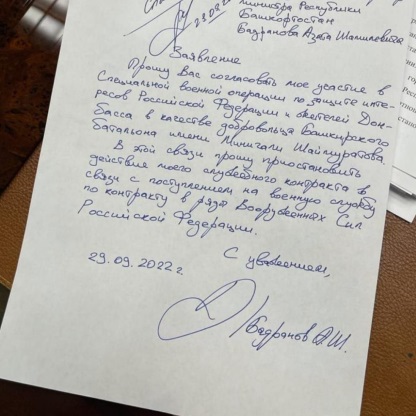 министра Республики
Башкортостан
Бадранова Азата Шамилевича
29.09.22
Заявление
Прошу Вас согласовать мое участие в
Специальной военной операции по защите инте-
ресов Российской Федерации и жителей Дон-
басса в качестве добровольца Башкирского
батальона имени Минигали Шаймуратова.
В этой связи прошу приостановить
действие моего служебного контракта в
связи с поступлением на военную службу
по контракту в ряды Вооруженных Сил
Российской Федерации.
С уважением,
29.09.2022 г.
/Бадранов А.Ш.